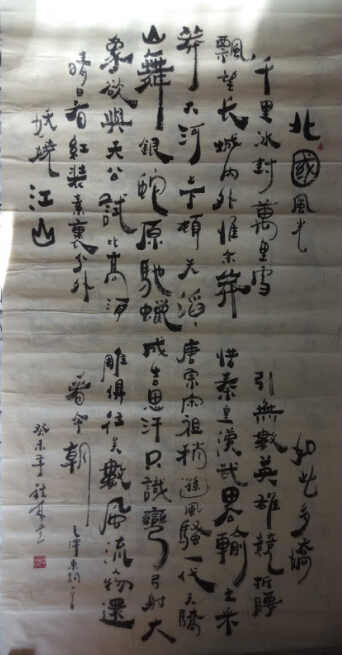 北國風光
千里冰封萬里雪
飄望長城內外惟余莽
莽大河上下頓失滔〻
山舞銀蛇原馳蠟
象欲與天公試比高須
晴日看紅裝素裹分外
妖嬈江山
如此多嬌
引無數英雄競折腰
惜秦皇漢武畧輸文采
唐宗宋祖稍遜風騷一代天驕
成吉思汗只識彎弓射大
雕俱往矣數風流物還
看今朝
毛澤東詞
癸未年